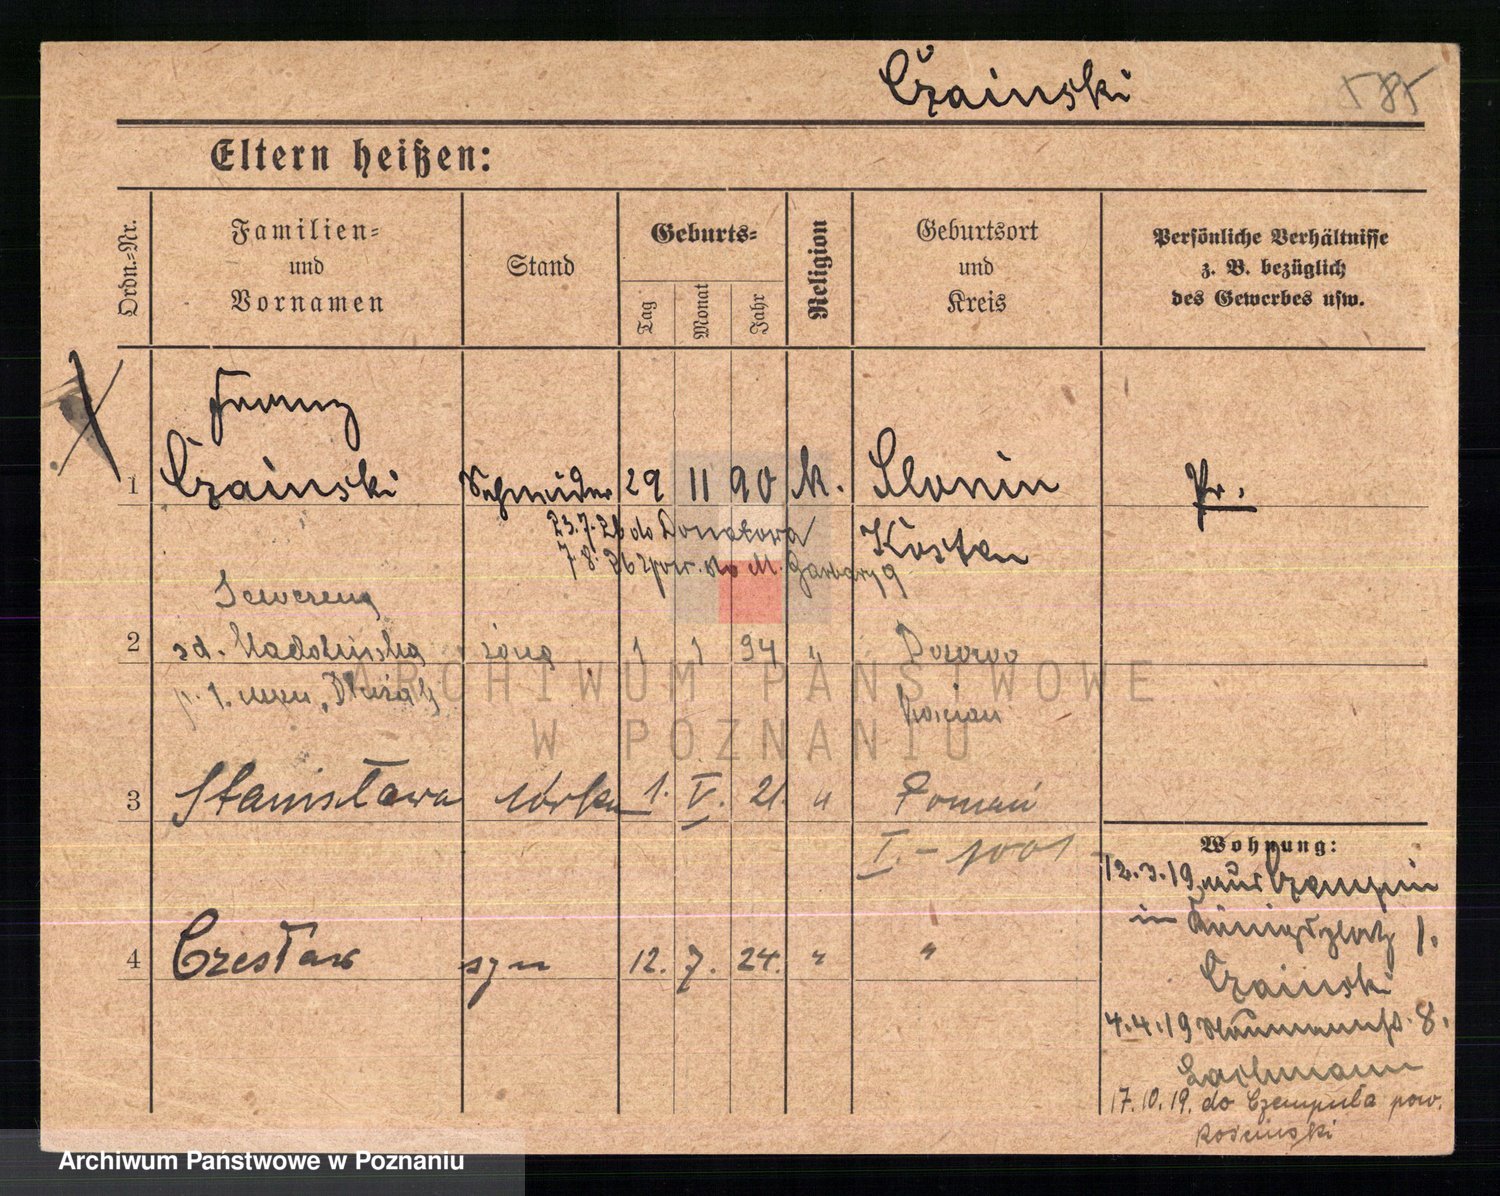 Czainski 585
Eltern heißen:
Ordn.-Nr.
Familien-
und
Vornamen
Stand
Geburts-
Tag
Monat
Jahr
Religion
Geburtsort
und
Kreis
Persönliche Verhältnisse
z. B. bezüglich
des Gewerbes usw.
Franz
1 Czainski Schneider 29 11 90 k. Slonin Pr.
23.7.26 do Donatowa Kosten
7.8.26 z pow. do M. Garbary 9
Seweryna
2 zd. żona 1 1 94 "
p. 1. Kościan
ARCHIWUM PAŃSTWOWE
W POZNANIU
3 Stanisława córka 1. V. 21. " Poznań
I. - 1001
Wohnung:
12.3.19 aus Czempin
in Königsplatz 1.
Czainski
4 Czesław syn 12. 7. 24. " "
4.4.19 Naumannst. 8.
Lachmann
17.10.19. do Czempinia pow.
Kościański
Archiwum Państwowe w Poznaniu